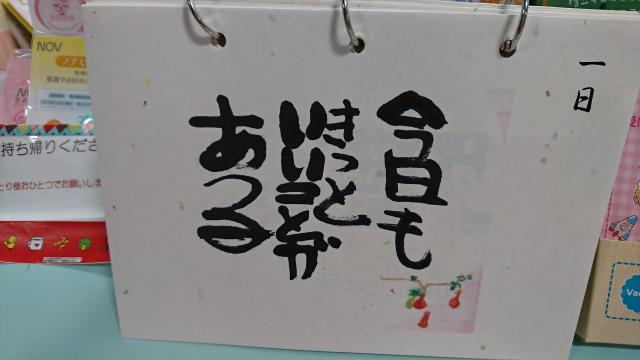 一日
今日も
きっと
いいことが
ある
NOV
持ち帰りくださ
とり様おひとつでお願いしま